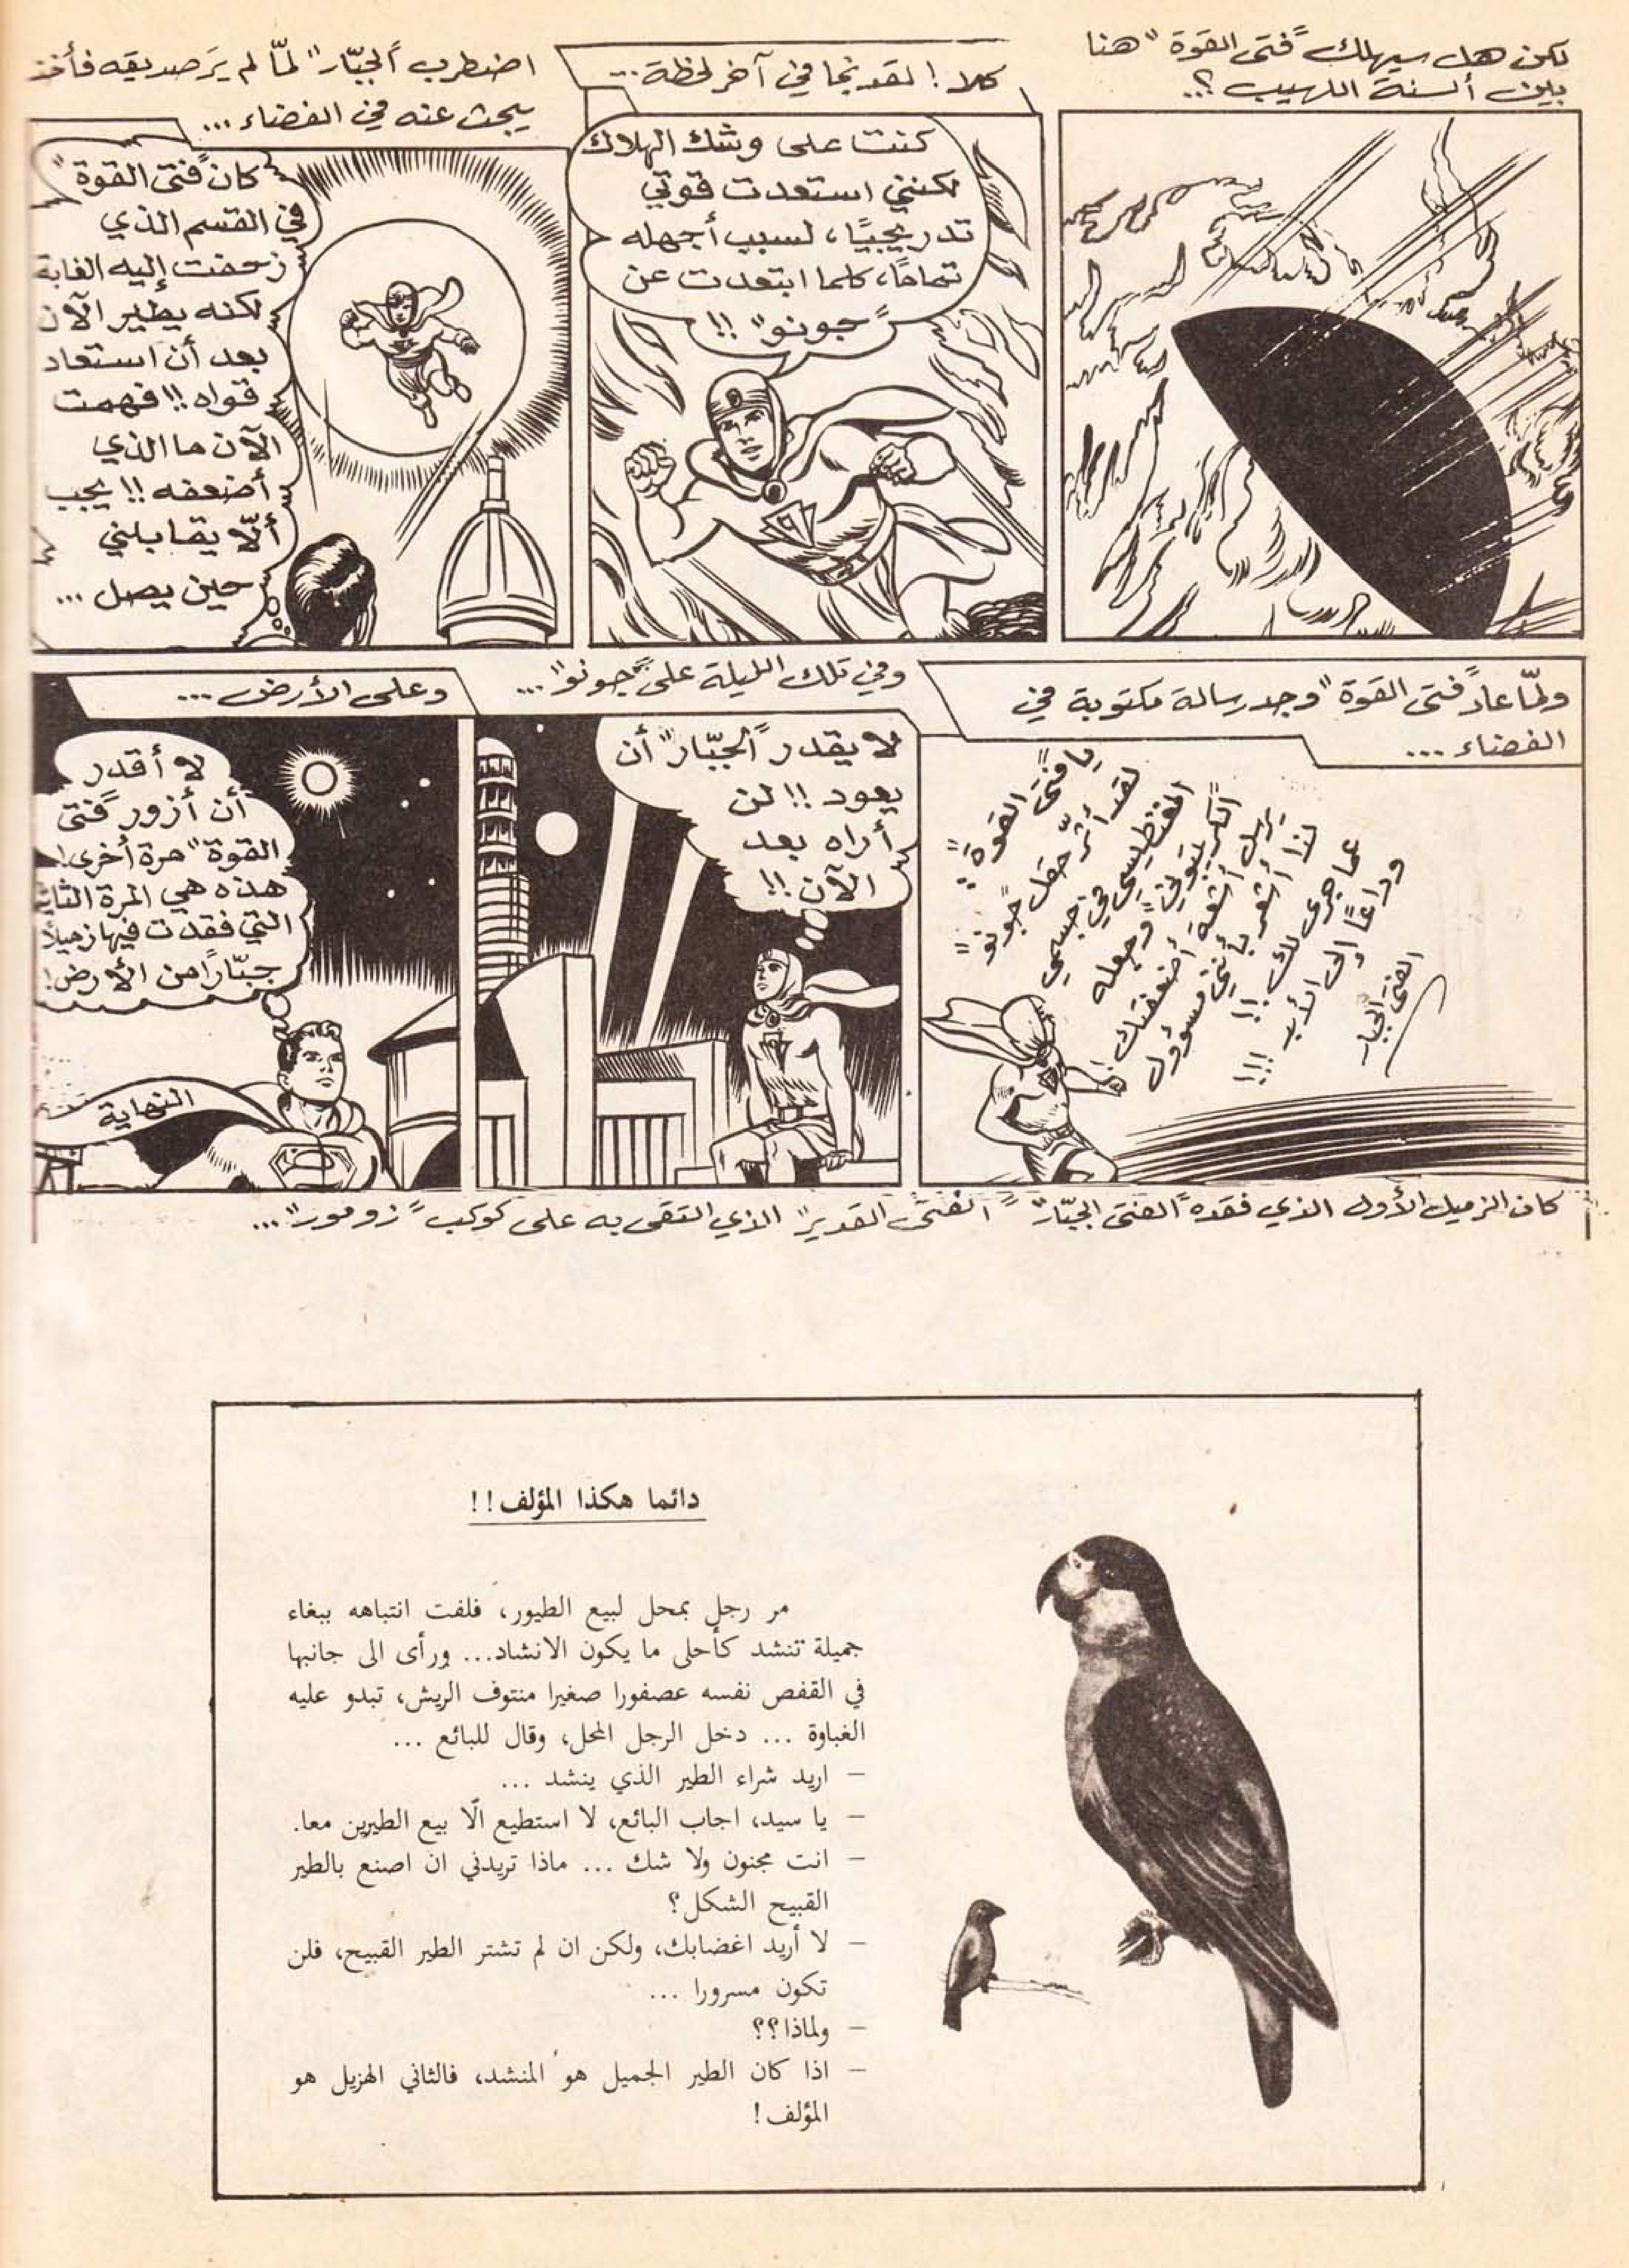 لكن هل سيهلك "فتى القوة" هنا
بين ألسنة اللهيب ؟..
كلا ! لقد نجا في آخر لحظة ...
كنت على وشك الهلاك
لكنني استعدت قوتي
تدريجيًا، لسبب أجهله
تمامًا، كلما ابتعدت عن
"جونو" !!
اضطرب "الجبّار" لمّا لم يَر صديقه فأخذ
يبحث عنه في الفضاء ...
كان "فتى القوة"
في القسم الذي
زحفت إليه الغابة
لكنه يطير الآن
بعد أن استعاد
قواه !! فهمت
الآن ما الذي
أضعفه !! يجب
ألّا يقابلني
حين يصل ...
ولمّا عاد "فتى القوة" وجد رسالة مكتوبة في
الفضاء ...
يا "فتى القوة" :
لقد أثّر حقل "جونو"
المغنطيسي في جسمي
"الكريبتوني" وجعله
يرسل أشعة أضعفتك !
لذا أشعر بأنني مسؤول
عما جرى لك !!
وداعًا إلى الأبد !!!
الفتى الجبار
وفي تلك الليلة على "جونو" ...
لا يقدر "الجبّار" أن
يعود !! لن
أراه بعد
الآن !!
وعلى الأرض ...
لا أقدر
أن أزور "فتى
القوة" مرة أخرى !
هذه هي المرة الثا
التي فقدت فيها زميلًا
جبّارًا من الأرض !
النهاية
كان الزميل الأول الذي فقده "الفتى الجبّار" "الفتى القدير" الذي التقى به على كوكب "زومور" ...
دائما هكذا المؤلف ! !
مر رجل بمحل لبيع الطيور، فلفت انتباهه ببغاء
جميلة تنشد كأحلى ما يكون الانشاد... ورأى الى جانبها
في القفص نفسه عصفورا صغيرا منتوف الريش، تبدو عليه
الغباوة ... دخل الرجل المحل، وقال للبائع ...
– اريد شراء الطير الذي ينشد ...
– يا سيد، اجاب البائع، لا استطيع الّا بيع الطيرين معا.
– انت مجنون ولا شك ... ماذا تريدني ان اصنع بالطير
القبيح الشكل ؟
– لا أريد اغضابك، ولكن ان لم تشتر الطير القبيح، فلن
تكون مسرورا ...
– ولماذا ؟؟
– اذا كان الطير الجميل هو المنشد، فالثاني الهزيل هو
المؤلف !